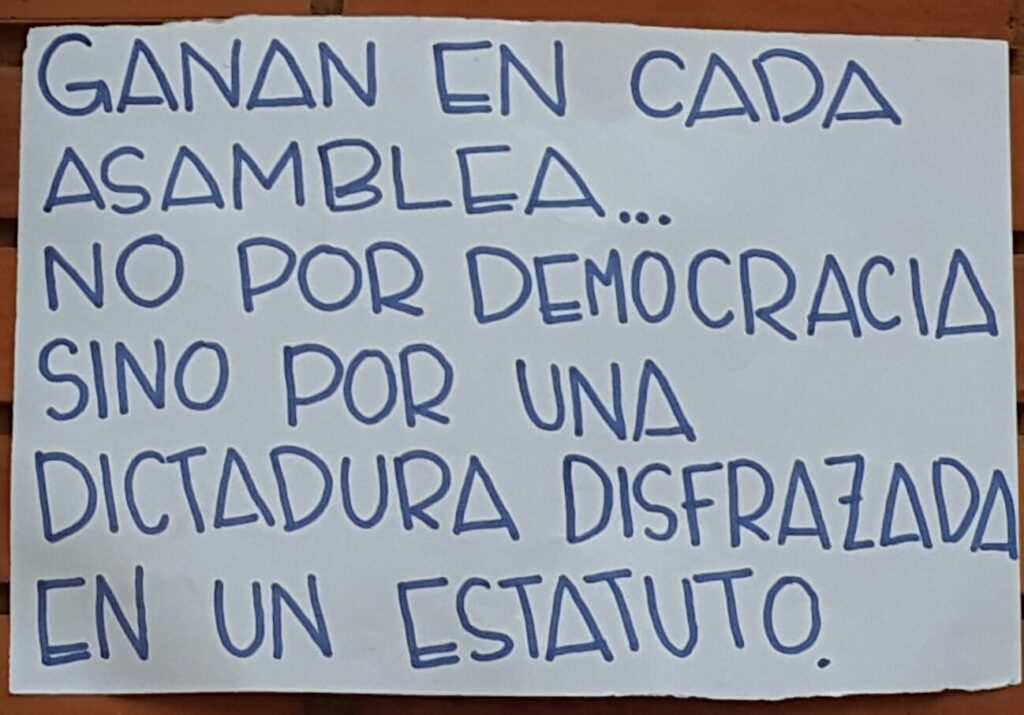 GANAN EN CADA
ASAMBLEA...
NO POR DEMOCRACIA
SINO POR UNA
DICTADURA DISFRAZADA
EN UN ESTATUTO.